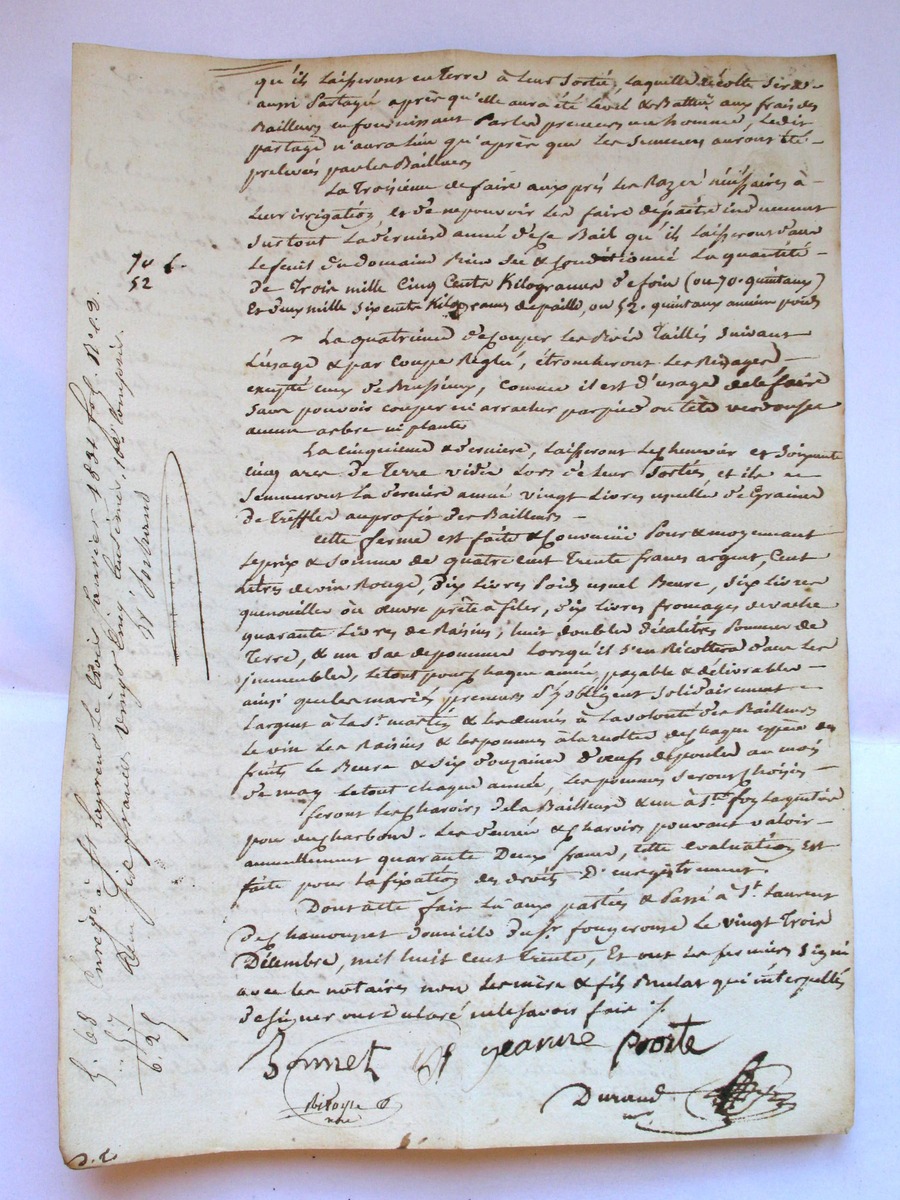 qu'ils laisseront en Terre à leur Sortie, laquelle récolte sera
aussi Partagée après qu'elle aura été levée & Battue aux frais des
Bailleurs en fournissant Par les preneurs un homme, ledit
partage n'aura lieu qu'après que les Semences auront été
prelevées par les Bailleurs
La Troisieme de faire aux prés les Razes nécessaires à
leur irrigation, et de ne pouvoir les faire dépaitre induement
surtout la derniere année de ce Bail qu'ils laisseront dans
le fenil du domaine Bien Sec & Conditionné la quantité
de Trois mille Cinq Cents Kilogrammes de foin (ou 70 quintaux)
et deux mille Six cents Kilogrammes de paille, ou 52 quintaux ancien poids
70 f.
52
La quatrieme de Couper les Bois Taillis Suivant
l'usage & par Coupe Réglée, étroncheront les
excepté ceux de Brussieux, Comme il est d'usage de le faire
Sans pouvoir couper ni arracher par pied ou tête verd ou sec
aucun arbre ni plante
La Cinquieme & derniere, laisseront le chenevier et Soixante
cinq ares de Terre vides lors de leur Sortie et ils
Semeront la derniere année vingt Livres usuelles de Graine
de Treffle au profit des Bailleurs
Cette ferme est faite & Convenue Pour & moyennant
le prix & Somme de quatre cent Trente francs argent, Cent
litres de vin Rouge, dix Livres Poids usuel Beure, dix Livres
quenouilles ou œuvre prête a filer, dix Livres fromages de vache
quarante Livres de Raisins, huit doubles décalitres Pommes de
Terre, & un Sac de pommes lorsqu'il s'en Récoltera dans les
immeubles, le tout pour chaque année, payable & délivrable
ainsi que les mariés preneurs s'y obligent Solidairement
l'argent à la St martin & les denrées à la volonté des Bailleurs
le vin les Raisins & les pommes à la récolte de chaque espèce de
fruits le Beure & Six douzaine d'œufs de poules au mois
de may le tout chaque année, les pommes Seront choisies
feront les charois de la Bailleuse & un à Ste foy l'argentiere
pour du charbon. Les denrées & charois pouvant valoir
annuellement quarante Deux francs, cette evaluation est
faite pour la fixation des droits d'enregistrement
Dont acte fait lu aux parties & Passé à St Laurent
de chamousset domicile du Sr fougerouse le vingt Trois
Décembre, mil huit cent Trente, Et ont les premiers Signé
avec les notaires non les mère & fils qui interpellés
de Signer ont déclaré ne le Savoir faire ./.
Bonnet jeanne
Durand
Enregé. à St Laurend le trois janvier 1831 fol.
Reçu Six francs vingt cinq centimes, 10e compris.
Durand
5. 68
57
6. 25